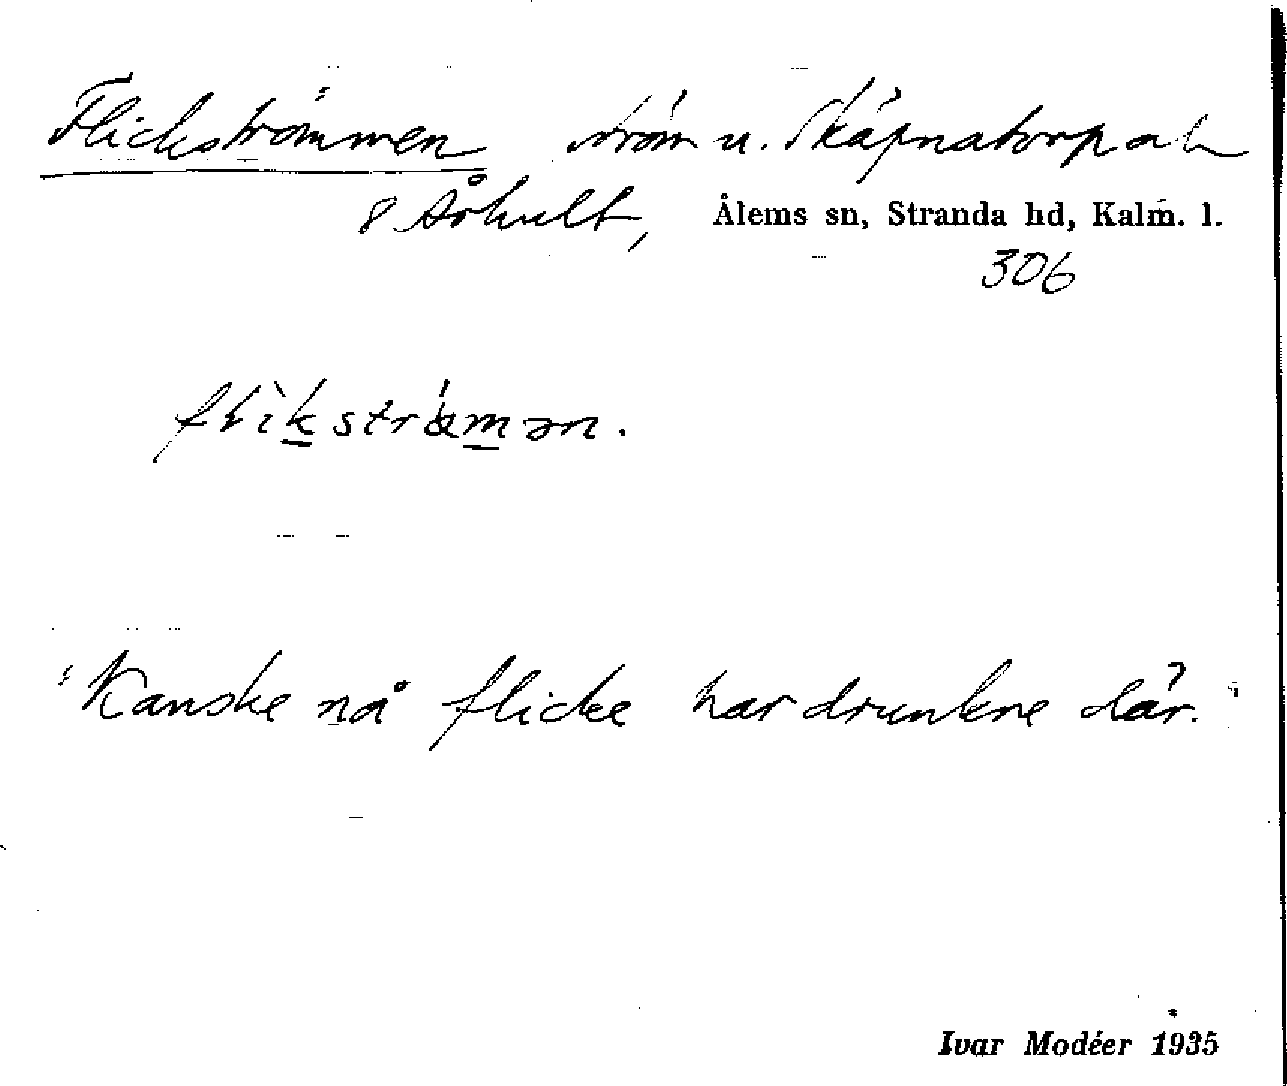 Flickströmmen ström u. Skäpnatorp o h
8 Åshult, Ålems sn, Stranda hd, Kalm. l.
306
flìkstrǿmən.
"Kanske nå flicke har drunkne där."
Ivar Modéer 1935